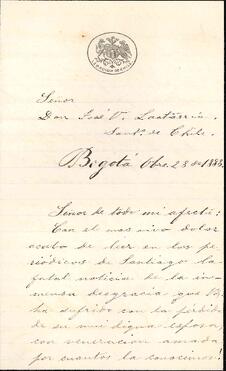 LEGACION DE CHILE
Señor
Don José V. Lastarria.
Sant. de Chile.
Bogotá Obre. 23 de 1883.
Señor de todo mi afecto:
Con el mas vivo dolor
acabo de leer en los pe-
riódicos de Santiago la
fatal noticia de la in-
mensa desgracia que
ha sufrido con la pérdida
de su mui digna esposa,
con veneracion amada
por cuantos la conocimos!